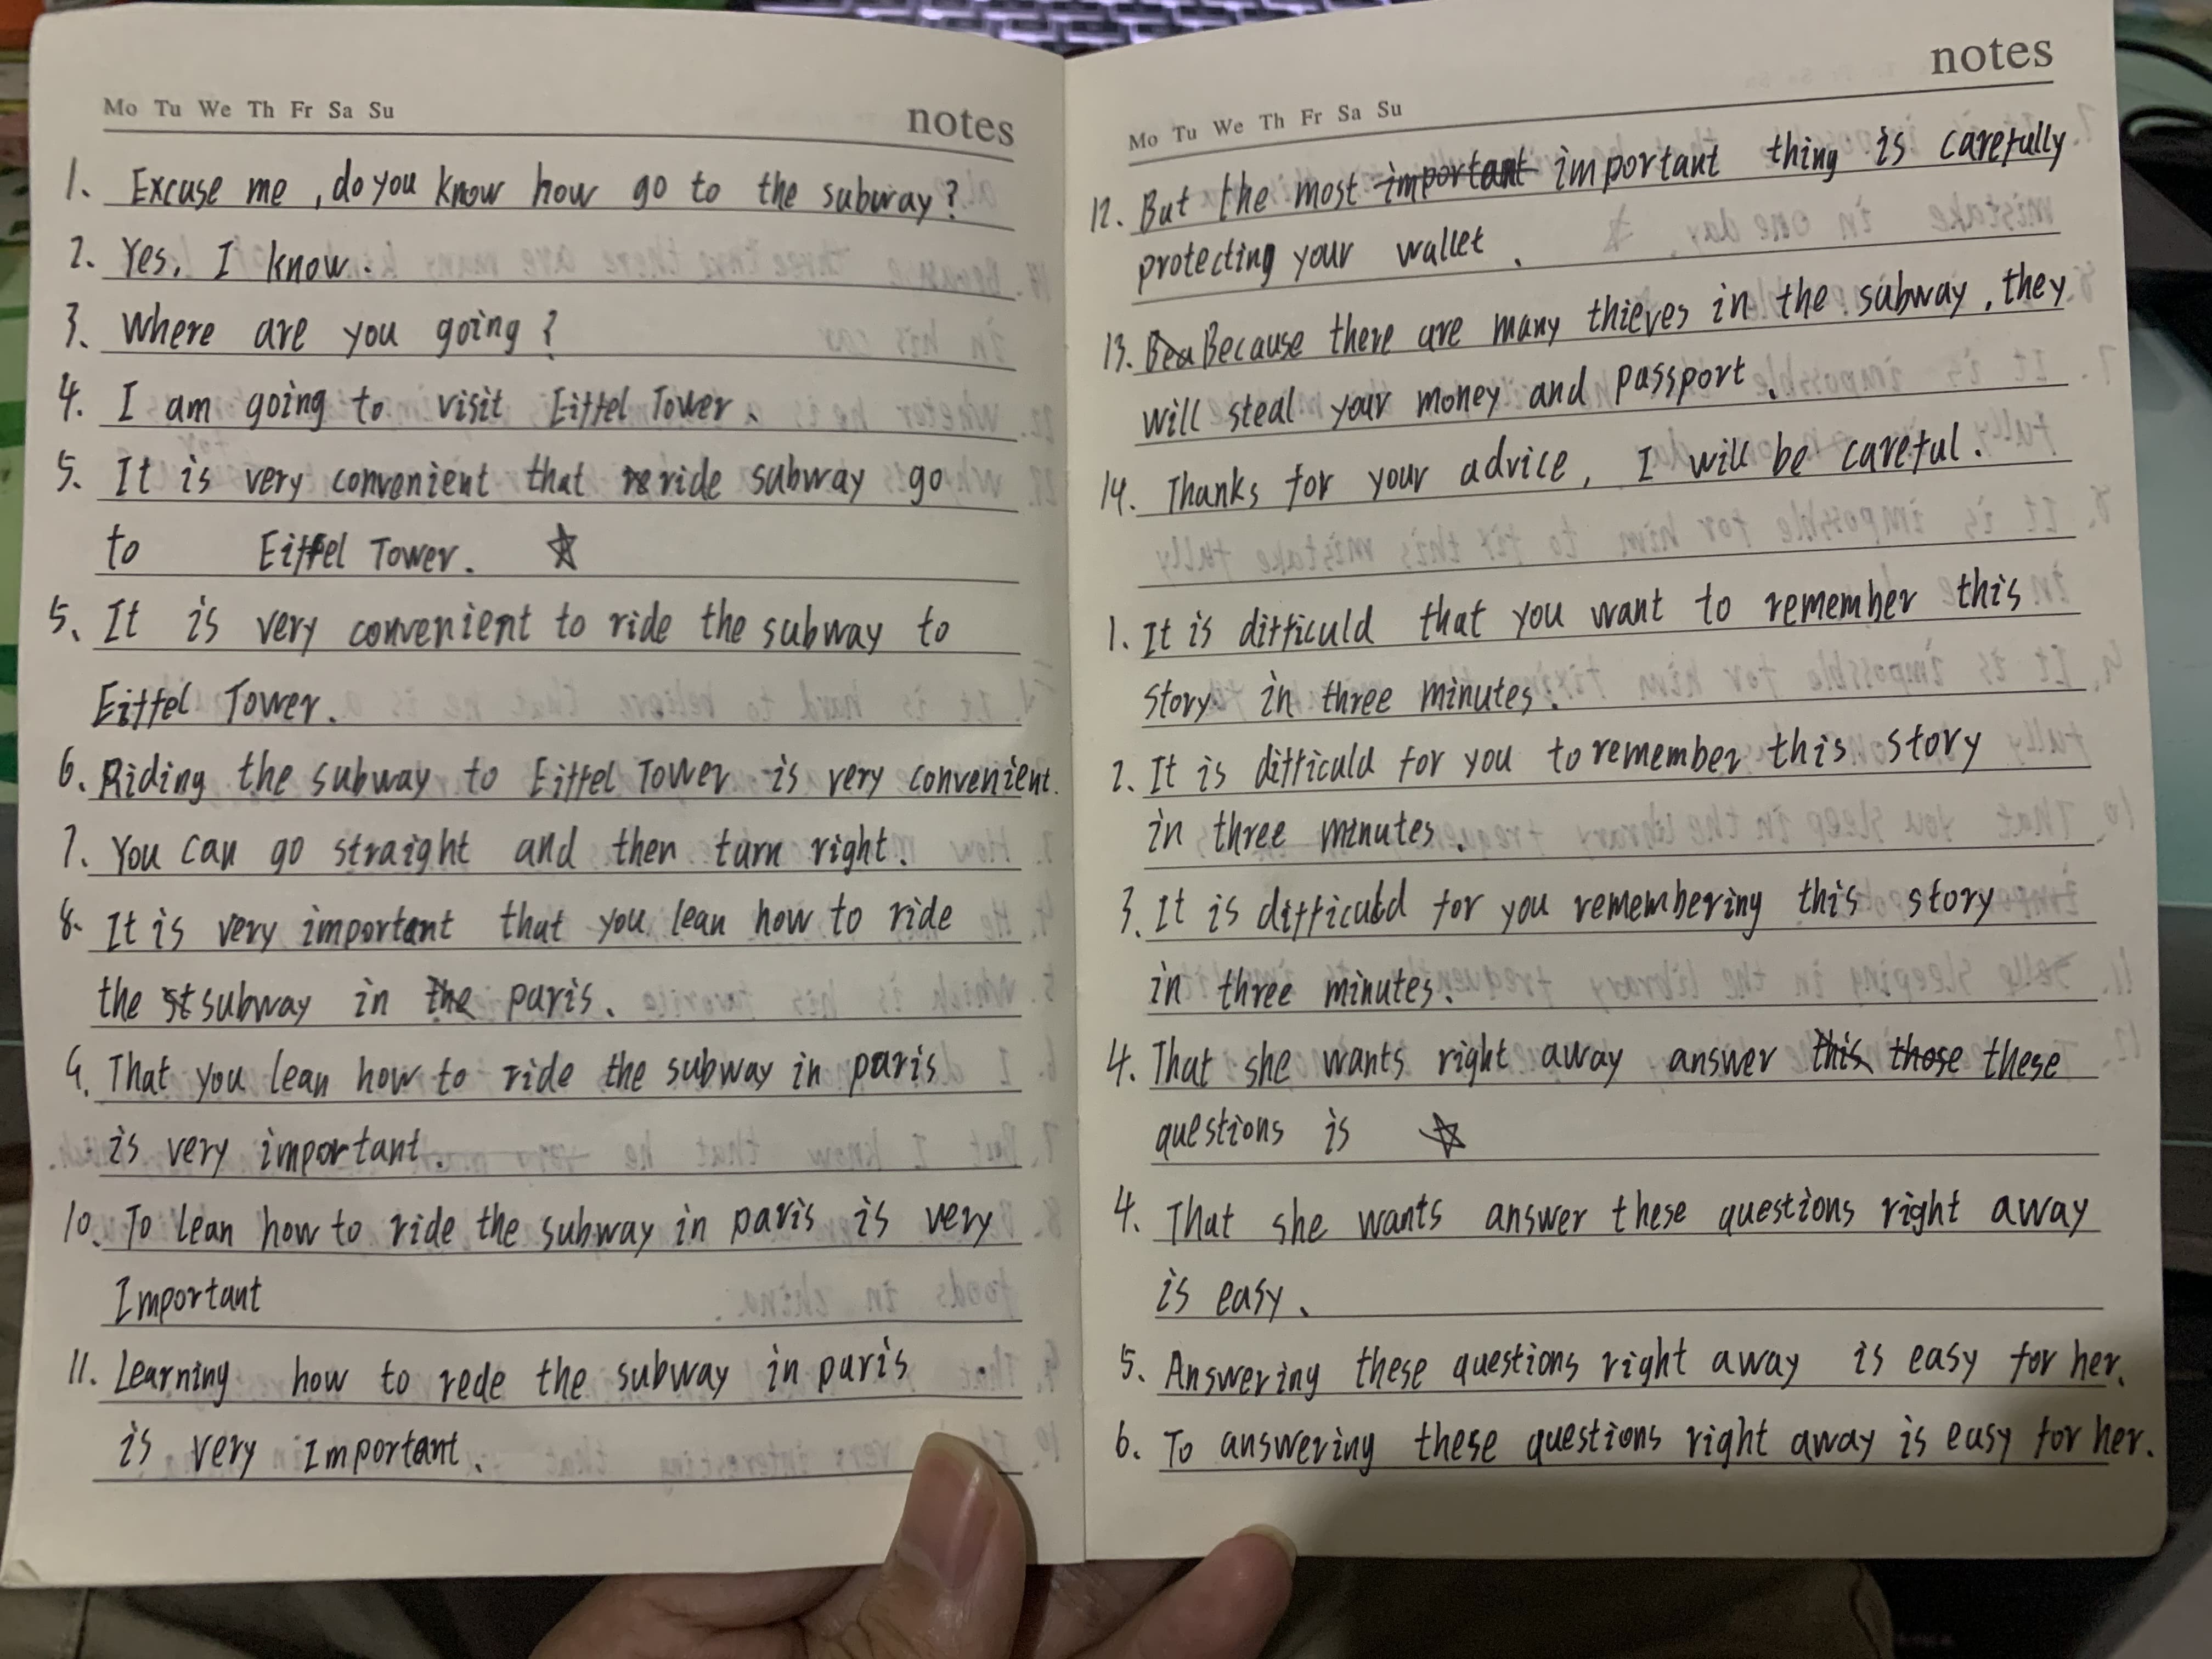 Mo Tu We Th Fr Sa Su notes
1. Excuse me, do you know how go to the subway?
2. Yes, I know.
3. Where are you going?
4. I am going to visit Eiffel Tower.
5. It is very convenient that re ride subway go
to Eiffel Tower. ☆
5. It is very convenient to ride the subway to
Eiffel Tower.
6. Riding the subway to Eiffel Tower is very convenient.
7. You can go straight and then turn right.
8. It is very important that you lean how to ride
the st subway in the paris.
9. That you lean how to ride the subway in paris
is very important.
10. To lean how to ride the subway in paris is very
Important
11. Learning how to rede the subway in paris
is very Important.
Mo Tu We Th Fr Sa Su notes
12. But the most important important thing is carefully
protecting your wallet.
13. Bea Because there are many thieves in the subway, they
will steal your money and passport.
14. Thanks for your advice, I will be careful.
1. It is difficuld that you want to remember this
story in three minutes.
2. It is difficuld for you to remember this story
in three minutes.
3. It is difficuld for you remembering this story
in three minutes.
4. That she wants right away answer this those these
questions is ☆
4. That she wants answer these questions right away
is easy.
5. Answering these questions right away is easy for her.
6. To answering these questions right away is easy for her.